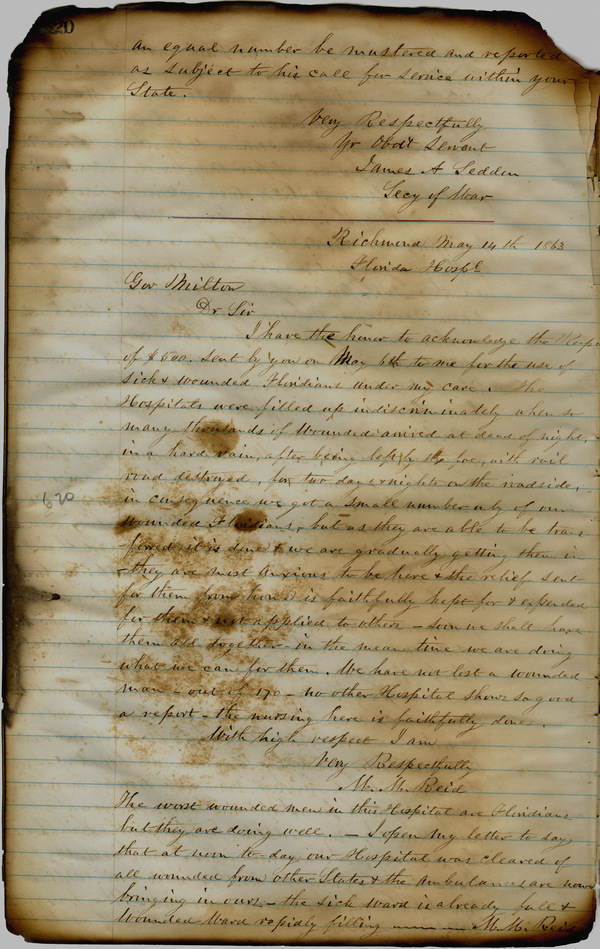 20
an equal number be mustered and reported
as subject to his call for service within your
State.
Very Respectfully
Yr Obdt Servent
James A Seddon
Secy of War
Richmond May 14th 1863
Florida Hospl
Gov Milton
Dr Sir
I have the honor to acknowledge the
of $500. sent by you on May 6th to me for the use of
sick & wounded Floridians under my care. The
Hospitals were filled up indiscriminately when so
many thousands of Wounded arrived at dead of night,
in a hard rain, after being left by the foe, with rail
road destroyed, for two days & nights on the roadside,
in consequence we got a small number only of our
wounded Floridians, but as they are able to be trans
620
ferred it is done & we are gradually getting them in
- they are most Anxious to be here & the relief sent
for them from home is faithfully kept for & expended
for them & not applied to others - soon we shall have
them all together - in the mean time we are doing
what we can for them. We have not lost a wounded
man - out of 170 - no other Hospital shows so good
a report - the nursing here is faithfully done.
With high respect I am
Very Respectfully
M. M. Reid
The worst wounded men in this Hospital are Floridians
but they are doing well. - I open my letter to say
that at noon to-day our Hospital was cleared of
all wounded from other States & the Ambulances are now
bringing in ours - the sick ward is already full &
Wounded Ward rapidly filling M. M. Reid